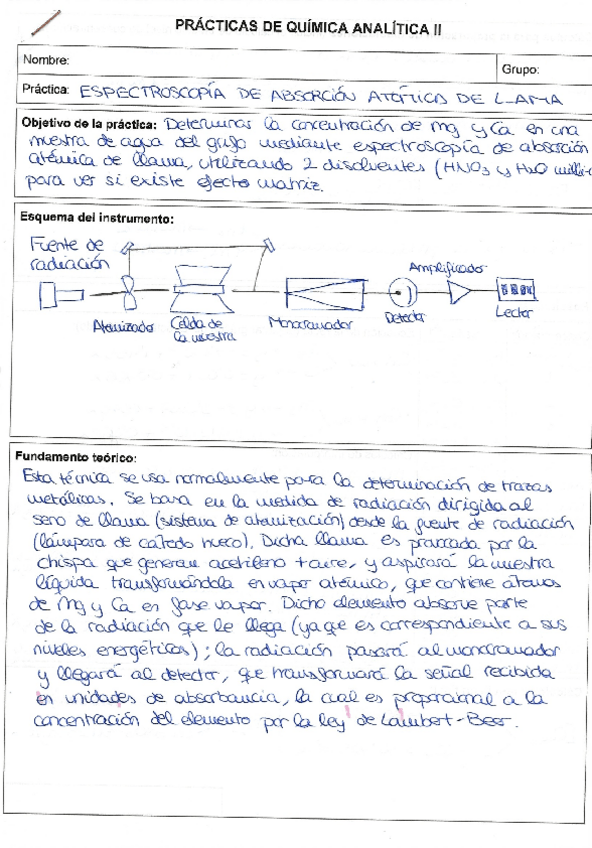 PRÁCTICAS DE QUÍMICA ANALÍTICA II
Nombre:
Grupo:
Práctica: ESPECTROSCOPÍA DE ABSORCIÓN ATÓMICA DE LLAMA
Objetivo de la práctica: Determinar la concentración de Mg y Ca en una
muestra de agua del grifo mediante espectroscopía de absorción
atómica de llama, utilizando 2 disolventes (HNO3 y H2O milli-
para ver si existe efecto matriz.
Esquema del instrumento:
Fuente de
radiación
Amplificador
Atomizador
Celda de
la muestra
Monocromador
Detector
Lector
Fundamento teórico:
Esta técnica se usa normalmente para la determinación de trazas
metálicas. Se basa en la medida de radiación dirigida al
seno de llama (sistema de atomización) desde la fuente de radiación
(lámpara de cátodo hueco). Dicha llama es provocada por la
chispa que generan acetileno + aire, y aspirará la muestra
líquida transformándola en vapor atómico, que contiene átomos
de Mg y Ca en fase vapor. Dicho elemento absorve parte
de la radiación que le llega (ya que es correspondiente a sus
niveles energéticos); la radiación pasará al monocromador
y llegará al detector, que transformará la señal recibida
en unidades de absorbancia, la cual es proporcional a la
concentración del elemento por la ley de Lambert-Beer.